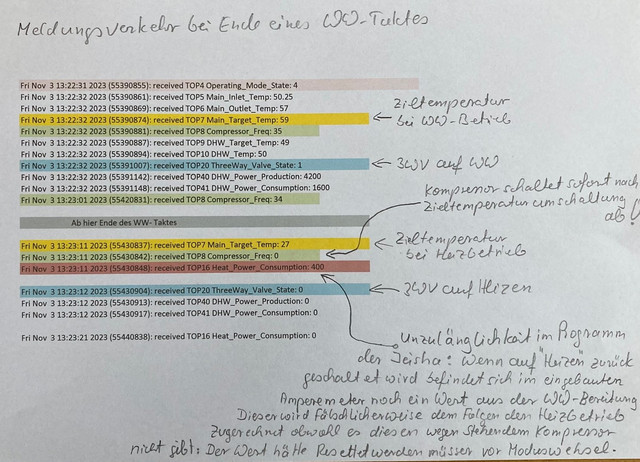 Meldungsverkehr bei Ende eines WW-Taktes
Fri Nov 3 13:22:31 2023 (55390855): received TOP4 Operating_Mode_State: 4
Fri Nov 3 13:22:32 2023 (55390861): received TOP5 Main_Inlet_Temp: 50.25
Fri Nov 3 13:22:32 2023 (55390869): received TOP6 Main_Outlet_Temp: 57
Fri Nov 3 13:22:32 2023 (55390874): received TOP7 Main_Target_Temp: 59
Zieltemperatur
bei WW-Betrieb
Fri Nov 3 13:22:32 2023 (55390881): received TOP8 Compressor_Freq: 35
Fri Nov 3 13:22:32 2023 (55390887): received TOP9 DHW_Target_Temp: 49
Fri Nov 3 13:22:32 2023 (55390894): received TOP10 DHW_Temp: 50
Fri Nov 3 13:22:32 2023 (55391007): received TOP20 ThreeWay_Valve_State: 1
3WV auf WW
Fri Nov 3 13:22:32 2023 (55391142): received TOP40 DHW_Power_Production: 4200
Fri Nov 3 13:22:32 2023 (55391148): received TOP41 DHW_Power_Consumption: 1600
Fri Nov 3 13:23:01 2023 (55420831): received TOP8 Compressor_Freq: 34
Kompressor schaltet sofort nach
Zieltemperaturumschaltung
ab!
Ab hier Ende des WW- Taktes
Fri Nov 3 13:23:11 2023 (55430837): received TOP7 Main_Target_Temp: 27
Zieltemperatur
bei Heizbetrieb
Fri Nov 3 13:23:11 2023 (55430842): received TOP8 Compressor_Freq: 0
Fri Nov 3 13:23:11 2023 (55430848): received TOP16 Heat_Power_Consumption: 400
Fri Nov 3 13:23:12 2023 (55430904): received TOP20 ThreeWay_Valve_State: 0
3WV auf Heizen
Fri Nov 3 13:23:12 2023 (55430913): received TOP40 DHW_Power_Production: 0
Fri Nov 3 13:23:12 2023 (55430917): received TOP41 DHW_Power_Consumption: 0
Fri Nov 3 13:23:21 2023 (55440838): received TOP16 Heat_Power_Consumption: 0
Unzulänglichkeit im Programm
der Jeisha: Wenn auf "Heizen" zurück
geschaltet wird befindet sich im eingebauten
Amperemeter noch ein Wert aus der WW-Bereitung
Dieser wird fälschlicherweise dem folgenden Heizbetrieb
zugerechnet obwohl es diesen wegen stehendem Kompressor
nicht gibt: Der Wert hätte Resettet werden müssen vor Moduswechsel.